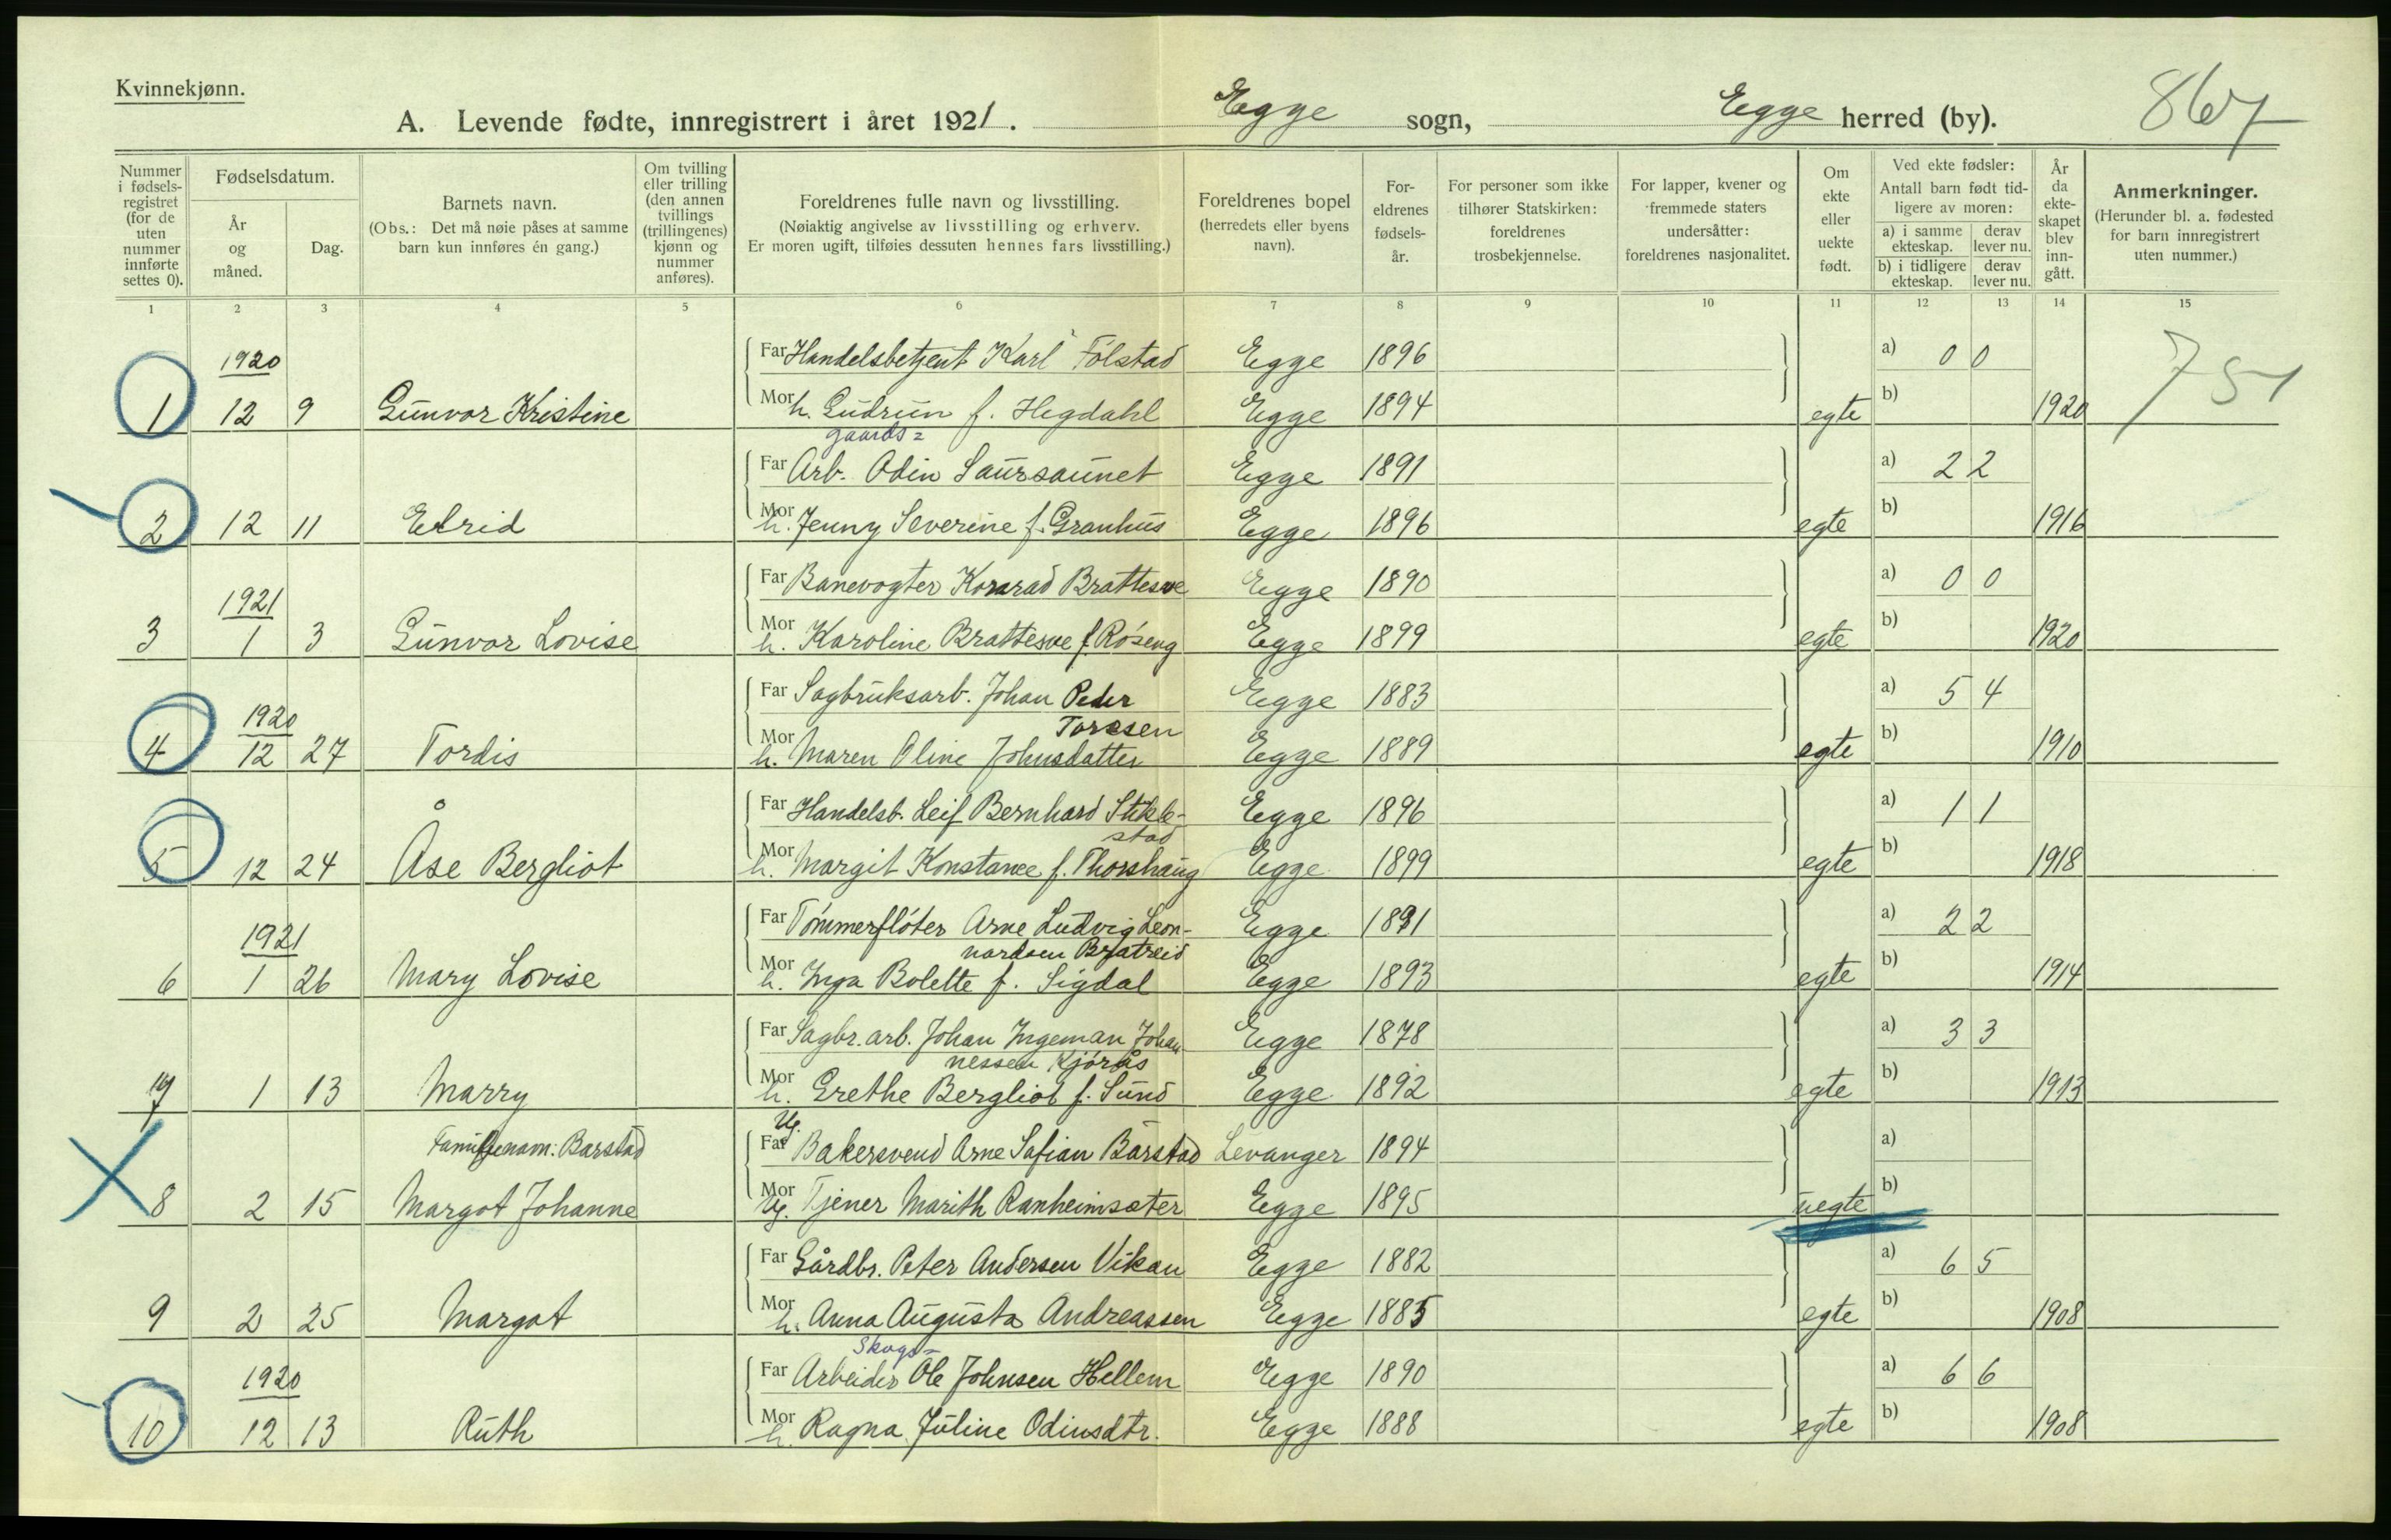 Kvinnekjønn.
A. Levende fødte, innregistrert i året 1921. Egge sogn, Egge herred (by). 867
Nummer i fødsels-registret (for de uten nummer innførte settes 0).
Fødselsdatum.
År og måned.
Dag.
Barnets navn.
(Obs.: Det må nøie påses at samme barn kun innføres én gang.)
Om tvilling eller trilling (den annen tvillings (trillingenes) kjønn og nummer anføres).
Foreldrenes fulle navn og livsstilling.
(Nøiaktig angivelse av livsstilling og erhverv.
Er moren ugift, tilføies dessuten hennes fars livsstilling.)
Foreldrenes bopel (herredets eller byens navn).
For-eldrenes fødsels-år.
For personer som ikke tilhører Statskirken: foreldrenes trosbekjennelse.
For lapper, kvener og fremmede staters undersåtter: foreldrenes nasjonalitet.
Om ekte eller uekte født.
Ved ekte fødsler:
Antall barn født tid-ligere av moren:
a) i samme ekteskap. derav lever nu.
b) i tidligere ekteskap. derav lever nu.
År da ekte-skapet blev inn-gått.
Anmerkninger.
(Herunder bl. a. fødested for barn innregistrert uten nummer.)
1 2 3 4 5 6 7 8 9 10 11 12 13 14 15
1920 Far Handelsbetjent Karl Følstad Egge 1896 a) 0 0 751
1 12 9 Gunvor Kristine Mor h. Gudrun f. Hegdahl Egge 1894 egte b) 1920
gaards=
Far Arb. Odin Saursaunet Egge 1891 a) 2 2
2 12 11 Eldrid Mor h. Jenny Severine f. Granhus Egge 1896 egte b) 1916
1921 Far Banevogter Konrad Brattesve Egge 1890 a) 0 0
3 1 3 Gunvor Lovise Mor h. Karoline Brattesve f. Røseng Egge 1899 egte b) 1920
1920 Far Sagbruksarb. Johan Peder Egge 1883 a) 5 4
Toresen
4 12 27 Tordis Mor h. Maren Oline Johnsdatter Egge 1889 egte b) 1910
Far Handelsb. Leif Bernhard Stikle- Egge 1896 a) 1 1
stad
5 12 24 Åse Bergliot Mor h. Margit Konstance f. Thorshaug Egge 1899 egte b) 1918
1921 Far Tømmerfløter Arne Ludvig Leon- Egge 1891 a) 2 2
nardsen Bratreid
6 1 26 Mary Lovise Mor h. Inga Bolette f. Sigdal Egge 1893 egte b) 1914
Far Sagbr. arb. Johan Ingeman Johan Egge 1878 a) 3 3
nessen Kjørås
7 1 13 Marry Mor h. Grethe Bergliot f. Sund Egge 1892 egte b) 1913
Familjenavn: Barstad Ug. Far Bakersvend Arne Safian Barstad Levanger 1894 a)
8 2 15 Margot Johanne Mor Ug. Tjener Marith Ranheimsæter Egge 1895 uegte b)
Far Gårdbr. Peter Andersen Vikan Egge 1882 a) 6 5
9 2 25 Margot Mor h. Anna Augusta Andreassen Egge 1885 egte b) 1908
Skogs=
1920 Far Arbeider Ole Johnsen Hellem Egge 1890 a) 6 6
10 12 13 Ruth Mor h. Ragna Juline Odinsdtr. Egge 1888 egte b) 1908